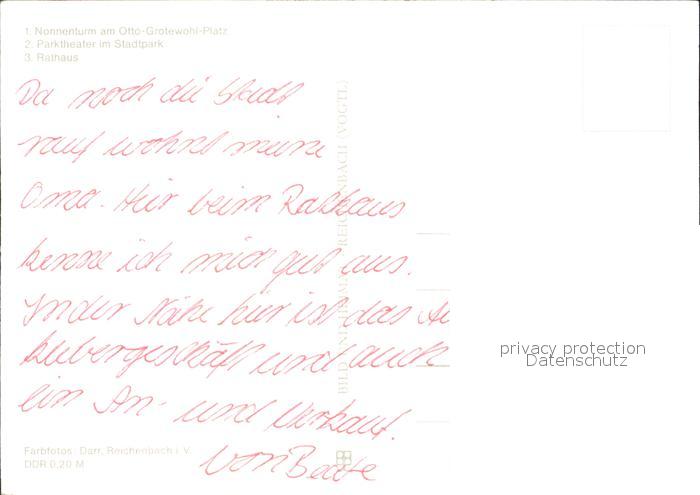 1. Nonnenturm am Otto-Grotewohl-Platz
2. Parktheater im Stadtpark
3. Rathaus
Da noch die Stadt
rauf wohnt meine
Oma. Hier beim Rathaus
kenne ich mich gut aus.
In der Nähe hier ist das
und auch
ein An- und Verkauf.
von Beate
Farbfotos: Darr, Reichenbach i. V.
DDR 0,20 M
BILD UND HEIMAT REICHENBACH (VOGTL)
privacy protection
Datenschutz